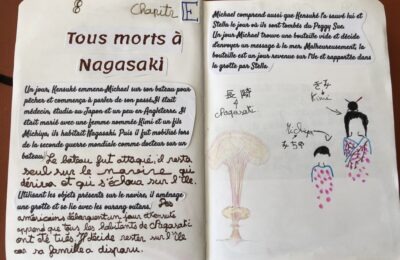 8
Chapitre
Tous morts à
Nagasaki
Un jour, Kensuké emmena Michael sur son bateau pour
pêcher et commença à parler de son passé. Il était
médecin, étudia au Japon et un peu en Angleterre. Il
était marié avec une femme nommée Kimi et un fils
Michiya, ils habitait Nagasaki. Puis il fut mobilisé lors
de la seconde guerre mondiale comme docteur sur un
bateau.
Le bateau fut attaqué, il resta
seul sur le navire qui
dériva et qui s'échoua sur l'île.
Utilisant les objets présents sur le navire, il aménage
une grotte et se lie avec les ourang outans. Des
américains débarquent un jour et Kensuké
apprend que tous les habitants de Nagasaki
ont été tués. Il décide rester sur l'île
car sa famille a disparu.
Michael comprend aussi que Kensuké la sauvé lui et
Stella le jour où ils sont tombés du Peggy Sue.
Un jour Michael trouve une bouteille vide et décide
d'envoyer un message à la mer. Malheureusement, la
bouteille est un jour revenue sur l'île et rapportée dans
la grotte par Stella.
長崎
Nagasaki
きみ
Kimi
Michiya
みちや